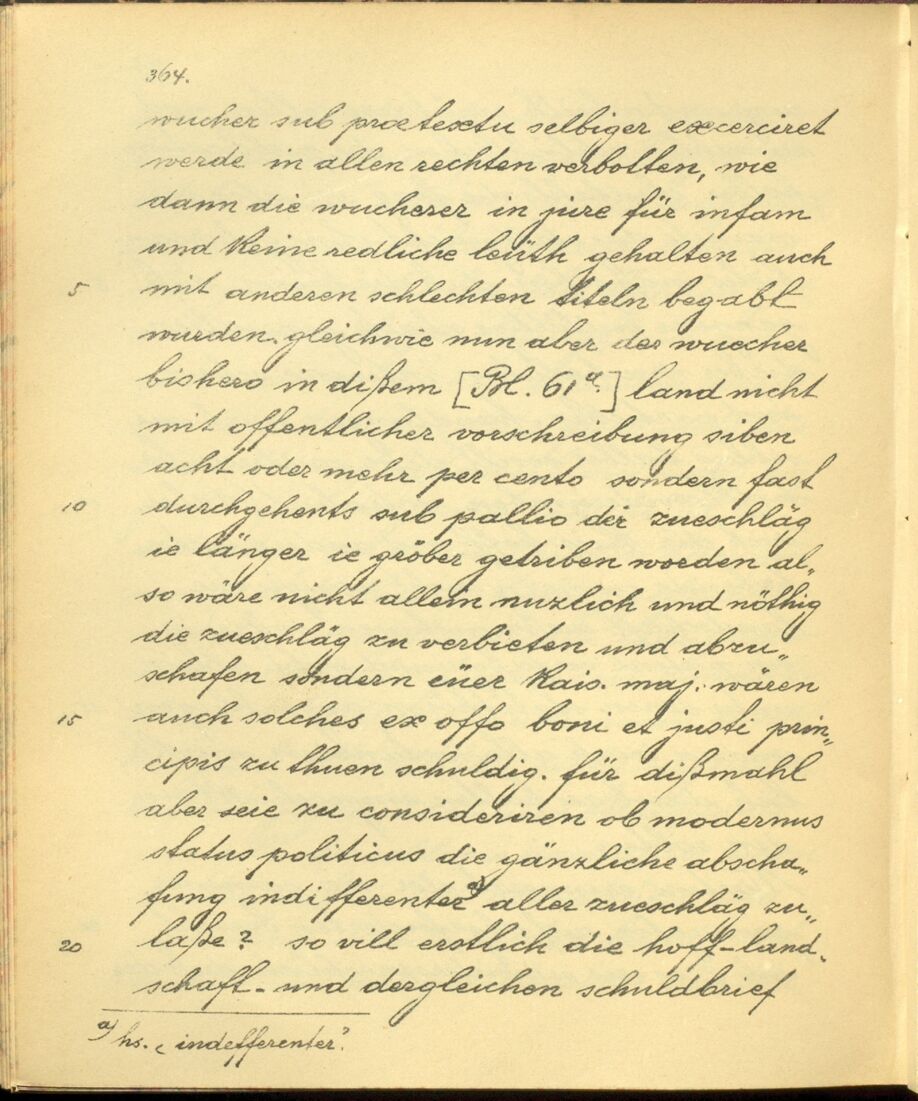 364.
wucher sub praetextu selbiger excerciret
werde in allen rechten verbotten, wie
dann die wucherer in jure für infam
und keine redliche leüth gehalten auch
5 mit anderen schlechten titeln begabt
wurden. gleichwie nun aber der wuecher
bishero in dißem [Bl. 61a.] land nicht
mit offentlicher vorschreibung siben
acht oder mehr per cento sondern fast
10 durchgehents sub pallio der zueschläg
ie länger ie gröber getriben worden al„
so wäre nicht allein nuzlich und nöthig
die zueschläg zu verbieten und abzu„
schafen sondern eüer kais. maj. wären
15 auch solches ex offo boni et justi prin„
cipis zu thuen schuldig. für dißmahl
aber seie zu consideriren ob modernus
status politicus die gänzliche abscha„
fung indifferenter a) aller zueschläg zu„
20 laße? so vill erstlich die hoff-land„
schafft- und dergleichen schuldbrief
a) hs. „indefferenter".